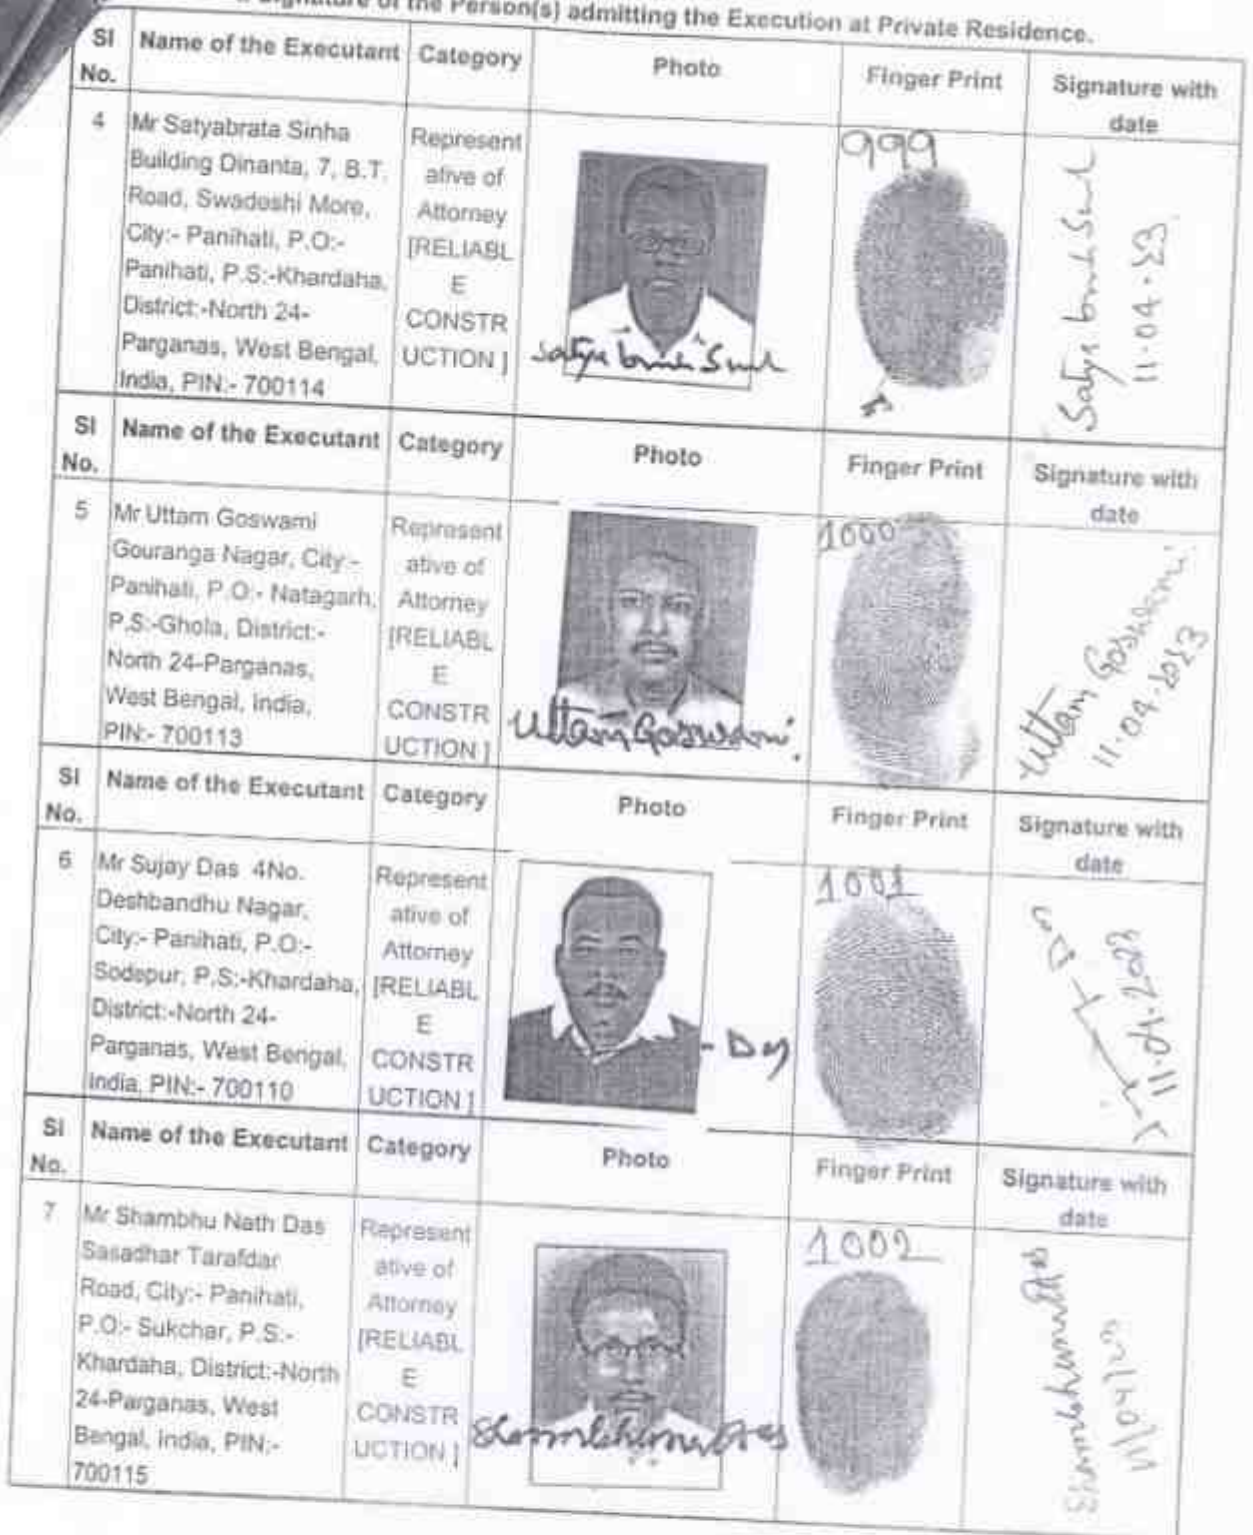 Signature of the Person(s) admitting the Execution at Private Residence.
Sl No. Name of the Executant Category Photo Finger Print Signature with date
4
Mr Satyabrata Sinha
Building Dinanta, 7, B.T.
Road, Swadeshi More,
City:- Panihati, P.O:-
Panihati, P.S:-Khardaha,
District:-North 24-
Parganas, West Bengal,
India, PIN:- 700114
Represent
ative of
Attorney
[RELIABL
E
CONSTR
UCTION ]
999
11.04.23
Sl No. Name of the Executant Category Photo Finger Print Signature with date
5
Mr Uttam Goswami
Gouranga Nagar, City:-
Panihati, P.O:- Natagarh,
P.S:-Ghola, District:-
North 24-Parganas,
West Bengal, India,
PIN:- 700113
Represent
ative of
Attorney
[RELIABL
E
CONSTR
UCTION ]
Uttam Goswami.
1000
Uttam Goswami
11.04.2023
Sl No. Name of the Executant Category Photo Finger Print Signature with date
6
Mr Sujay Das 4No.
Deshbandhu Nagar,
City:- Panihati, P.O:-
Sodepur, P.S:-Khardaha,
District:-North 24-
Parganas, West Bengal,
India, PIN:- 700110
Represent
ative of
Attorney
[RELIABL
E
CONSTR
UCTION ]
- Das
1001
Das
11.04.2023
Sl No. Name of the Executant Category Photo Finger Print Signature with date
7
Mr Shambhu Nath Das
Sasadhar Tarafdar
Road, City:- Panihati,
P.O:- Sukchar, P.S:-
Khardaha, District:-North
24-Parganas, West
Bengal, India, PIN:-
700115
Represent
ative of
Attorney
[RELIABL
E
CONSTR
UCTION ]
1002
11/04/23